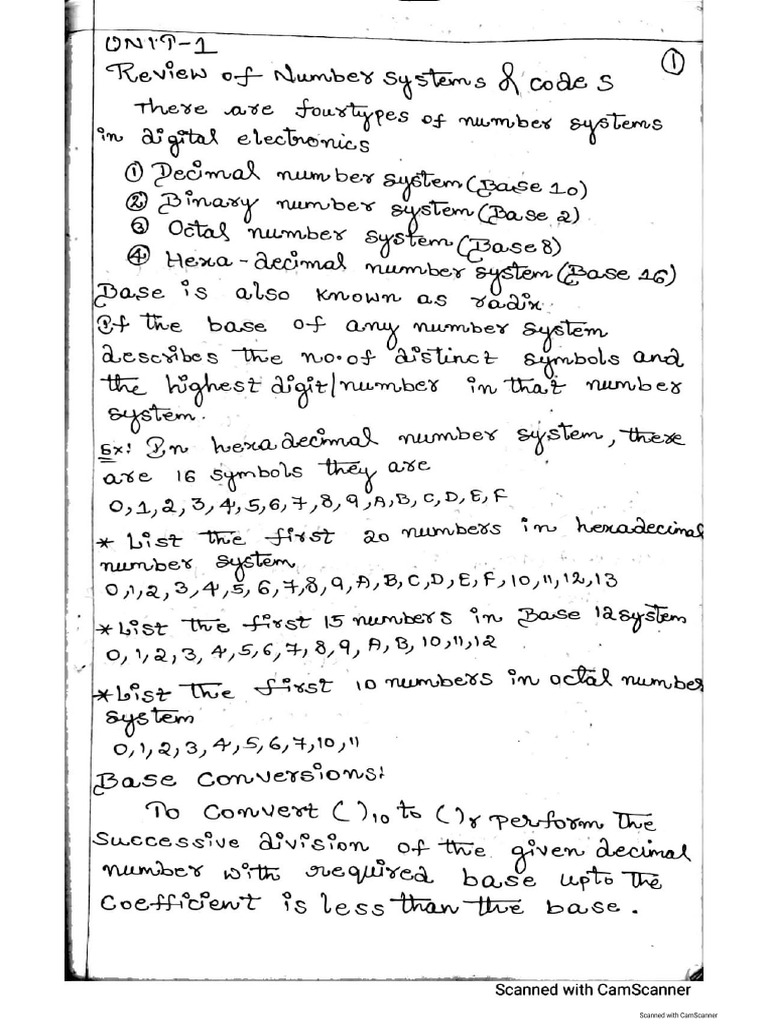 UNIT-1
①
Review of Number systems & codes
There are fourtypes of number systems
in digital electronics
① Decimal number system (Base 10)
② Binary number system (Base 2)
③ Octal number system (Base 8)
④ Hexa-decimal number system (Base 16)
Base is also known as radix.
If the base of any number system
describes the no.of distinct symbols and
the highest digit/number in that number
system.
Ex: In hexadecimal number system, there
are 16 symbols they are
0,1,2,3,4,5,6,7,8,9,A,B,C,D,E,F
* List the first 20 numbers in hexadecimal
number system
0,1,2,3,4,5,6,7,8,9,A,B,C,D,E,F,10,11,12,13
*List the first 15 numbers in Base 12 system
0,1,2,3,4,5,6,7,8,9,A,B,10,11,12
*List the first 10 numbers in octal number
system
0,1,2,3,4,5,6,7,10,11
Base Conversions:
To convert ( )10 to ( )r perform the
successive division of the given decimal
number with required base upto the
coefficient is less than the base.
Scanned with CamScanner
Scanned with CamScanner